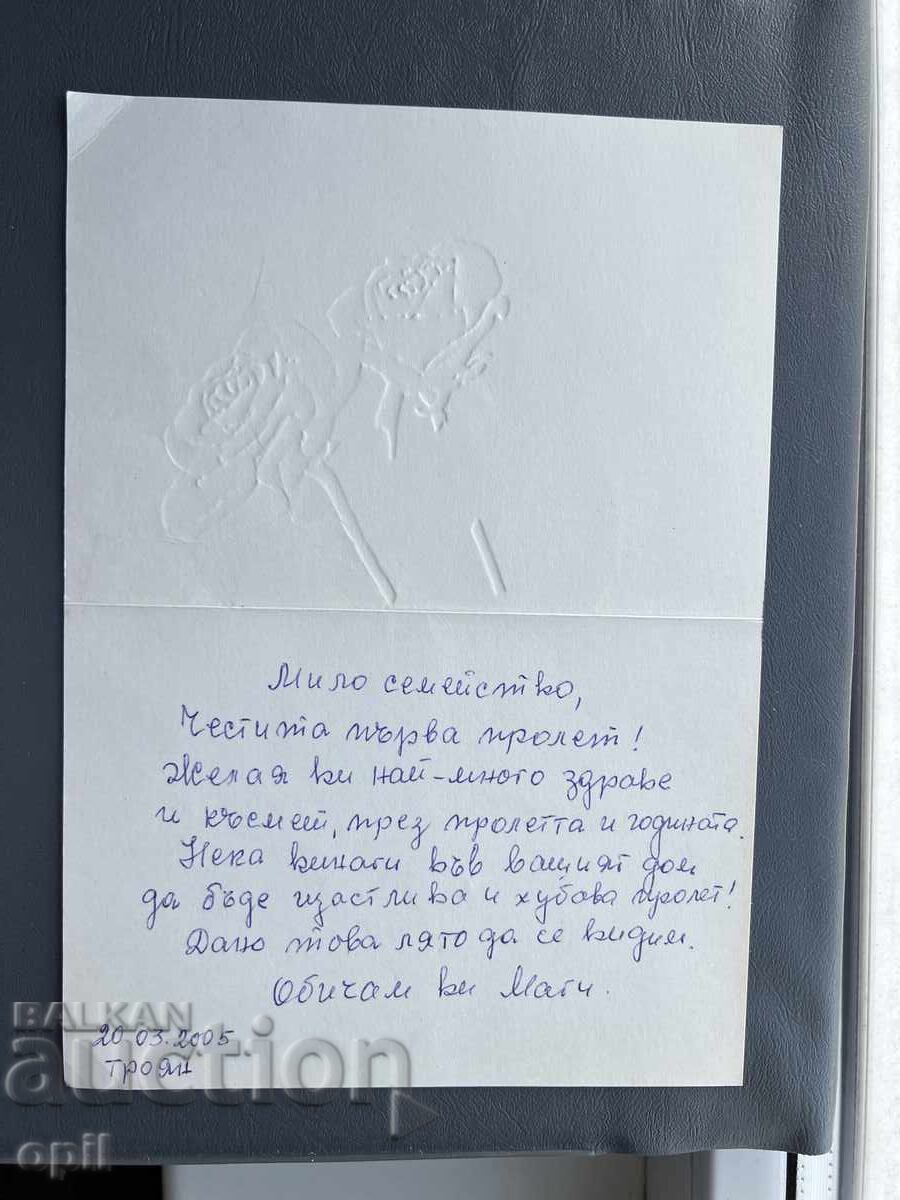 Мило семейство,
Честита първа пролет!
Желая ви най-много здраве
и късмет, през пролетта и годината.
Нека винаги във вашият дом
да бъде щастлива и хубава пролет!
Дано това лято да се видим.
Обичам ви Маги.
20.03.2005
Троян
BALKAN
auction
opil